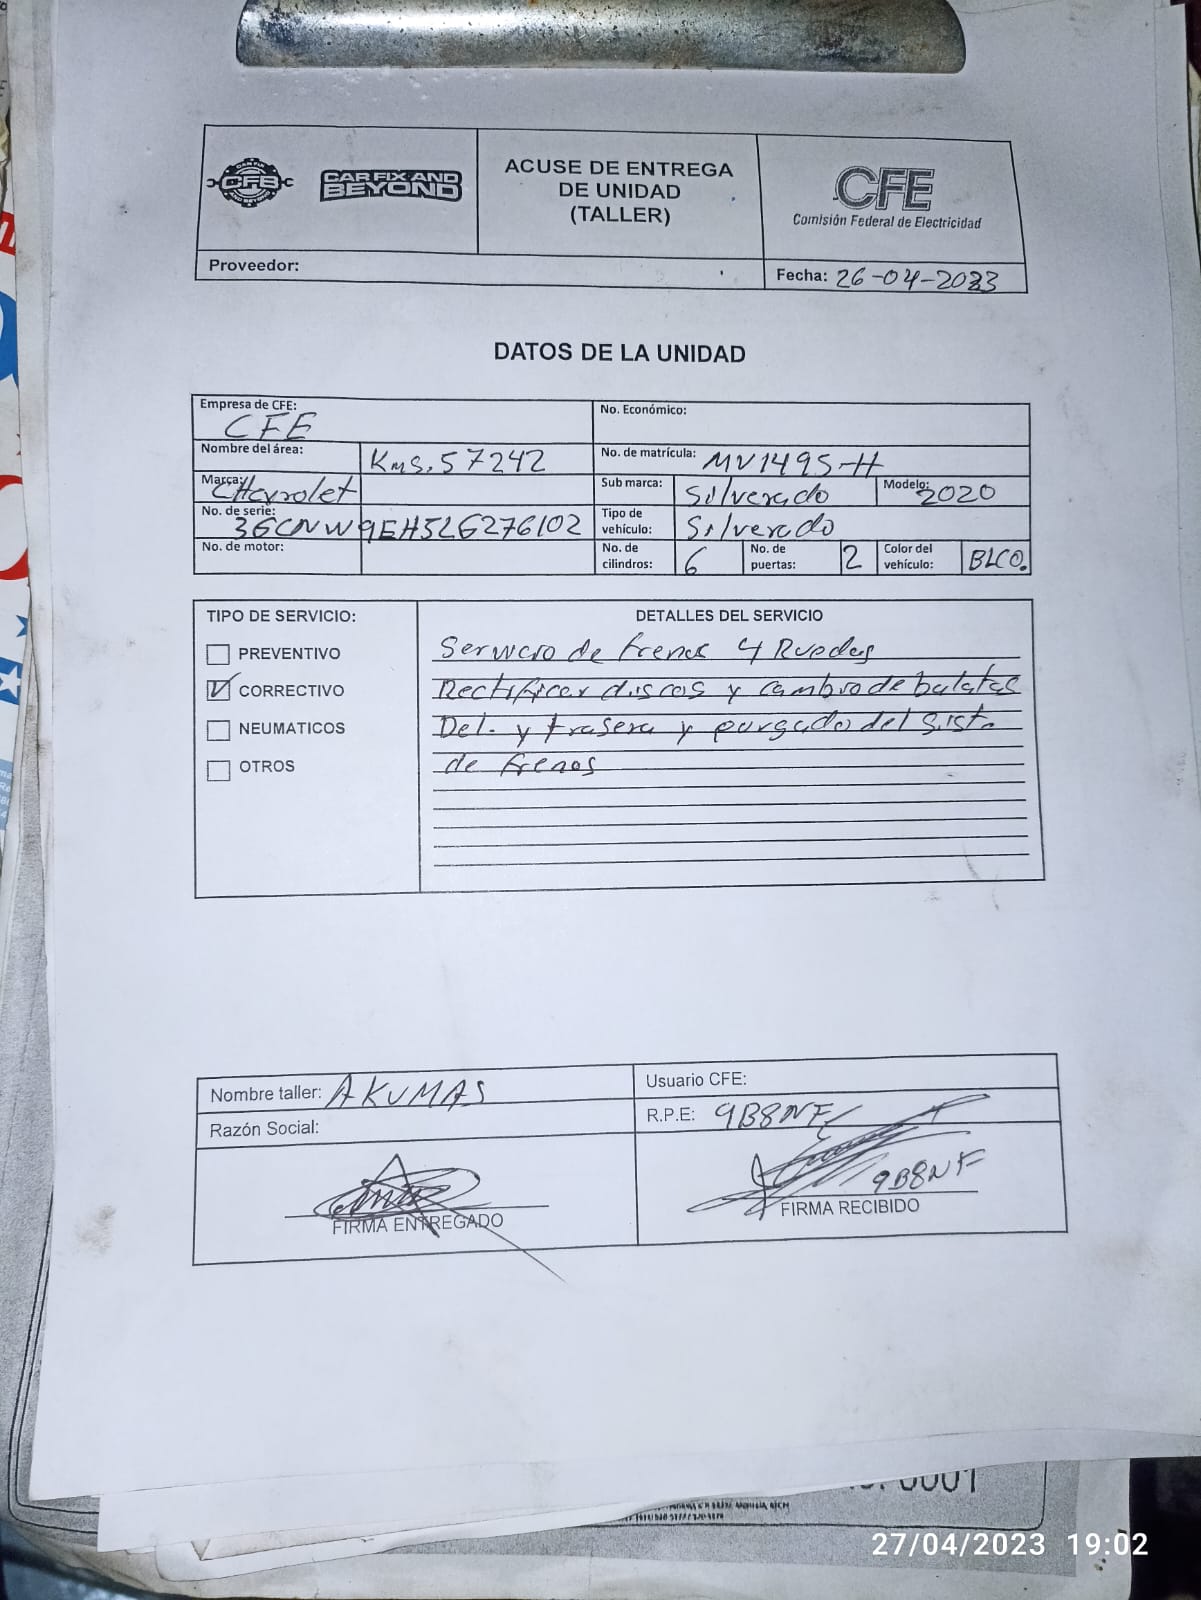 CAR FIX
CFB
AND BEYOND
CAR FIX AND
BEYOND
ACUSE DE ENTREGA
DE UNIDAD
(TALLER)
CFE
Comisión Federal de Electricidad
Proveedor:
Fecha: 26-04-2023
DATOS DE LA UNIDAD
Empresa de CFE: CFE
No. Económico:
Nombre del área: Kms. 57242
No. de matrícula: MV1495-H
Marca: CHevrolet
Sub marca: Silverado
Modelo: 2020
No. de serie: 3GCNW9EH5LG276102
Tipo de vehículo: Silverado
No. de motor:
No. de cilindros: 6
No. de puertas: 2
Color del vehículo: BLCO.
TIPO DE SERVICIO:
PREVENTIVO
CORRECTIVO
NEUMATICOS
OTROS
DETALLES DEL SERVICIO
Servicio de frenos 4 Ruedas
Rectificar discos y cambio de balatas
Del. y trasera y purgado del Sist.
de frenos
Nombre taller: AKUMAS
Razón Social:
Usuario CFE:
R.P.E: 9B8NF
FIRMA ENTREGADO
9B8NF
FIRMA RECIBIDO
0001
27/04/2023 19:02